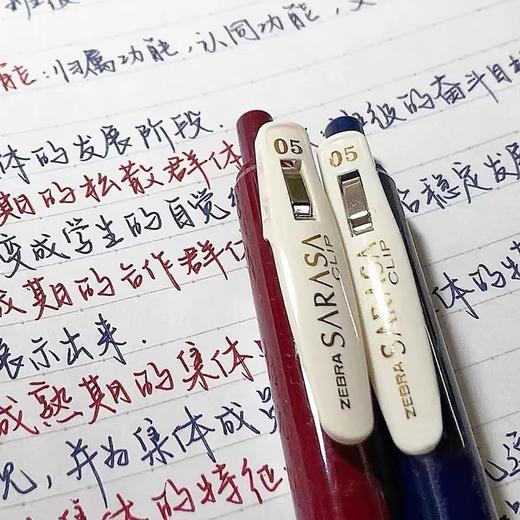 能:归属功能,认同功能,
体的发展阶段.
期的松散群体
变成学生的自觉
成期的合作群体
展示出来.
成熟期的集体
并为集体成员
集体的特征
征的奋斗目标
稳定发展
体的特
05
ZEBRA SARASA CLIP
05
ZEBRA SARASA CLIP